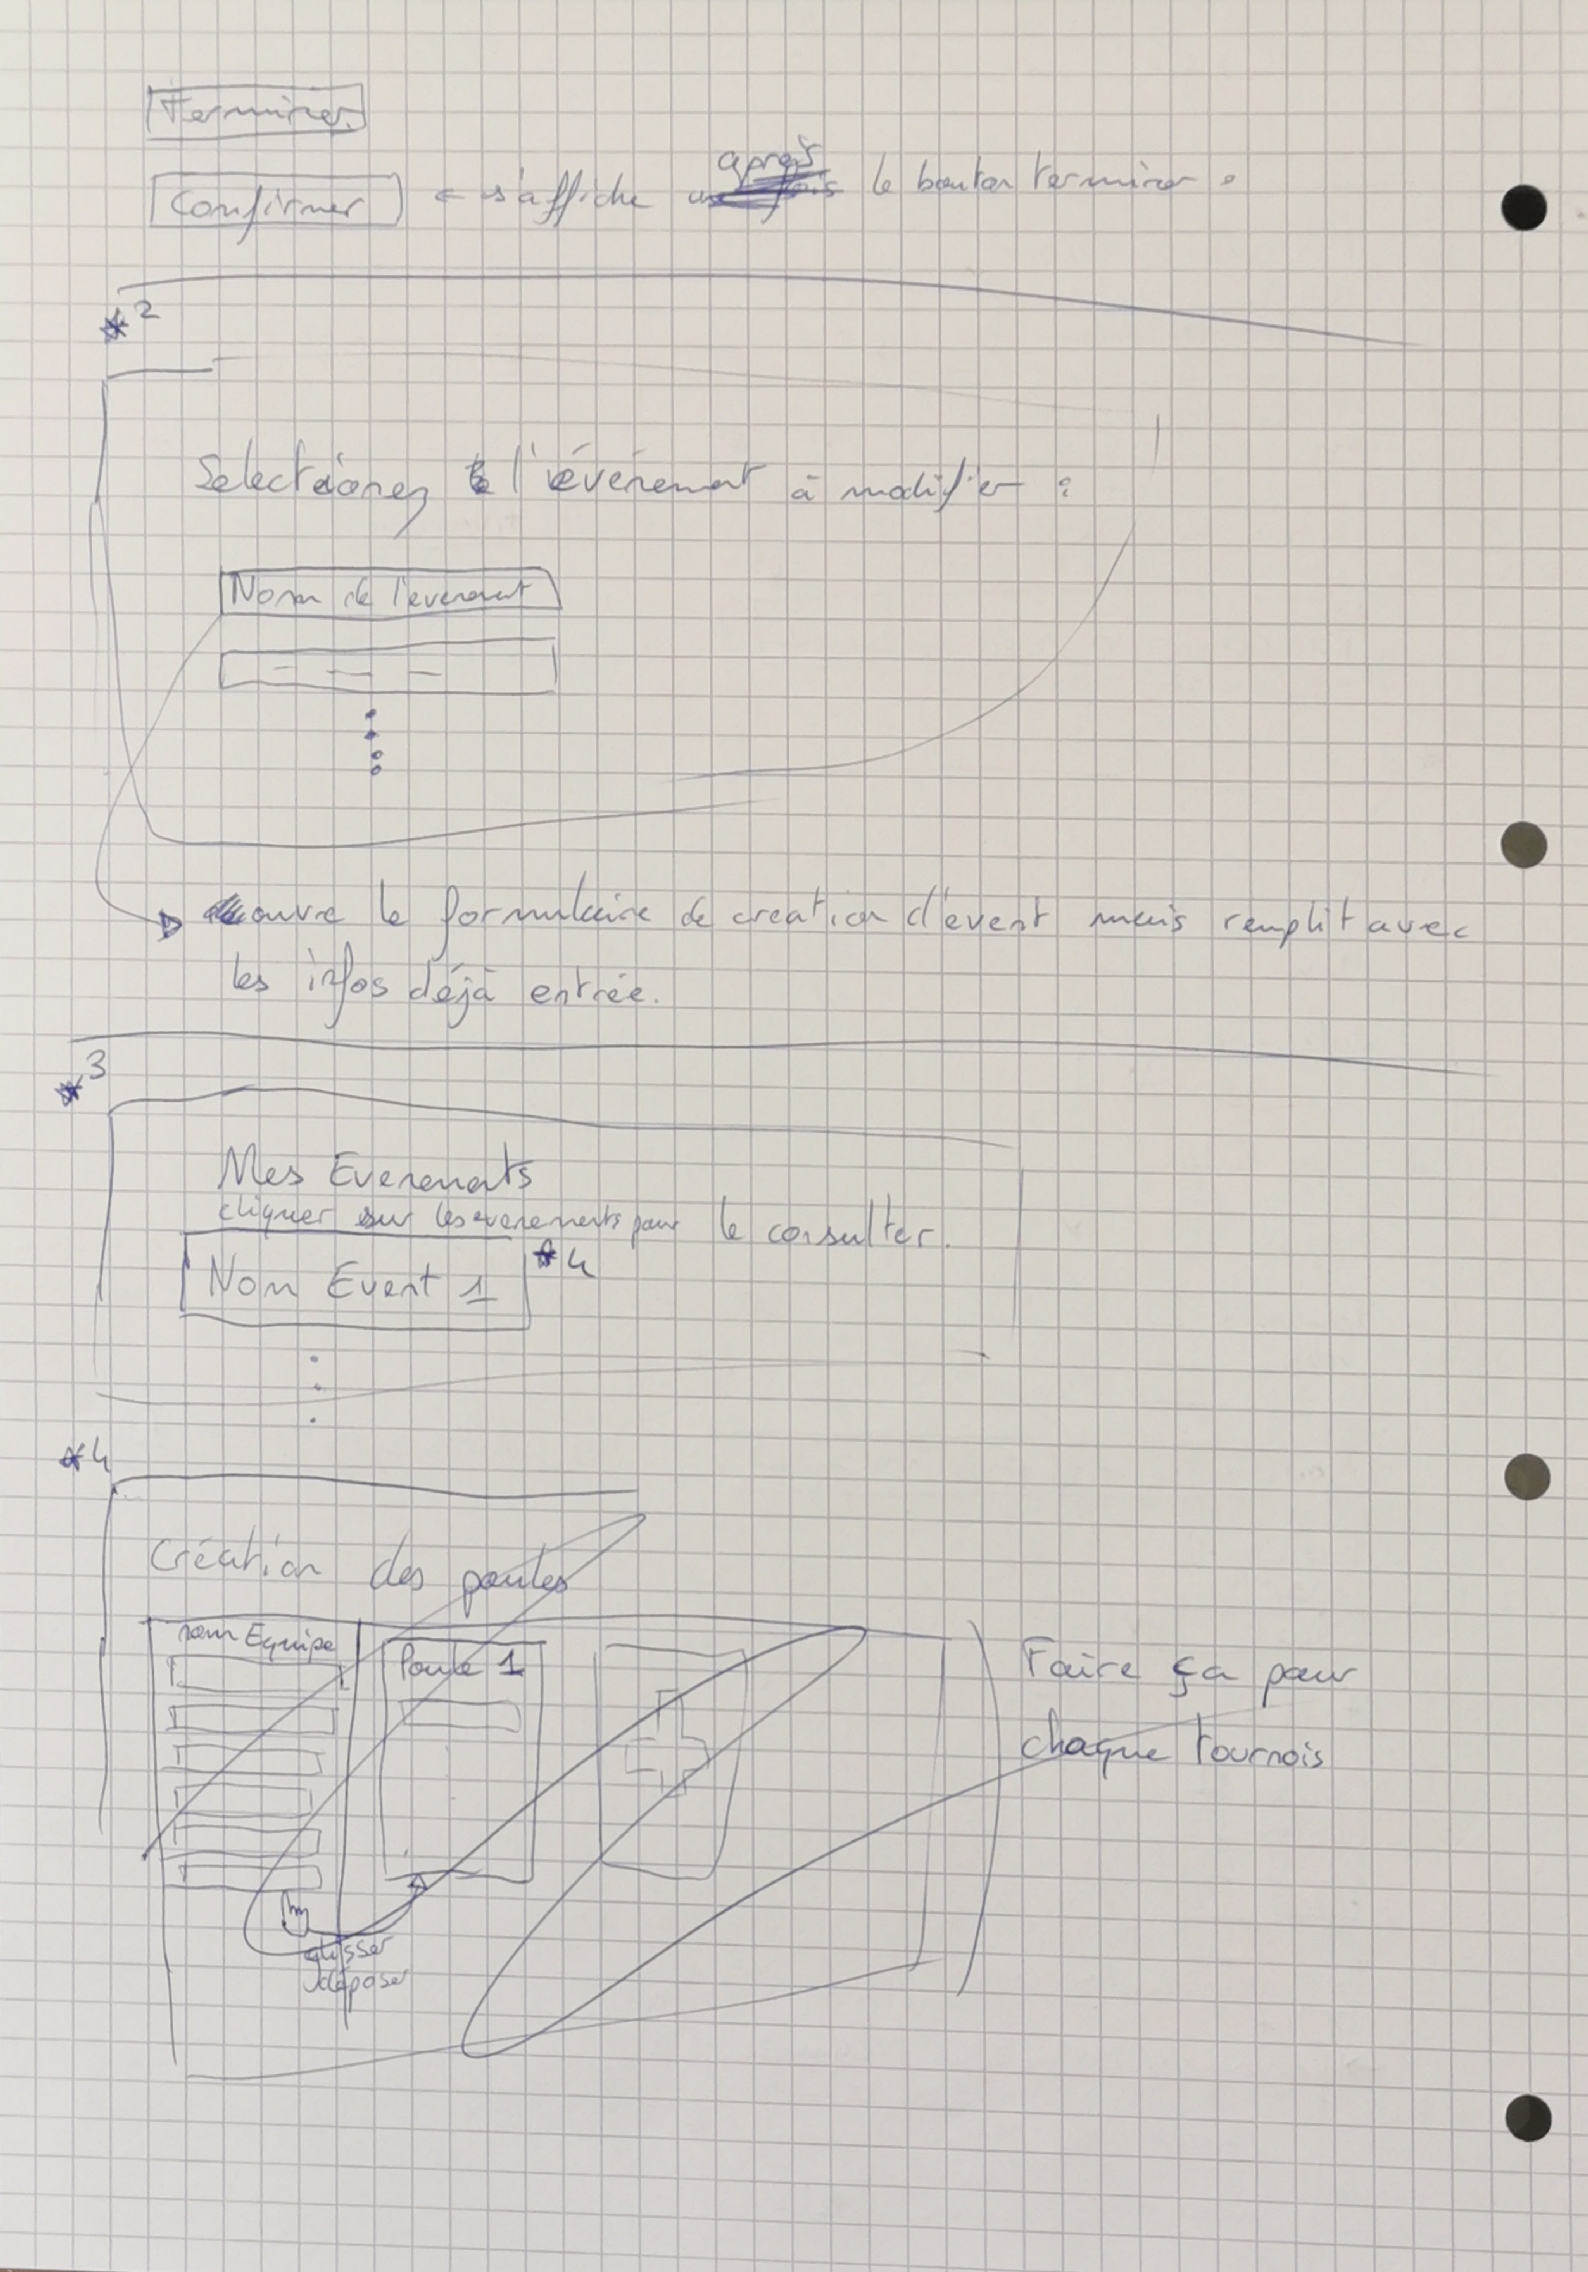 Terminer
après
Confirmer ← s'affiche le bouton terminer.
*2
Selectionez l'événement à modifier :
Nom de l'evenement
ouvre le formulaire de creation d'event mais remplit avec
les infos déjà entrée.
*3
Mes Evenements
cliquer sur les evenements pour le consulter.
Nom Event 1 *4
*4
Création des poules
nom Equipe
Poule 1
Faire ça pour
chaque tournois
glisser
déposer